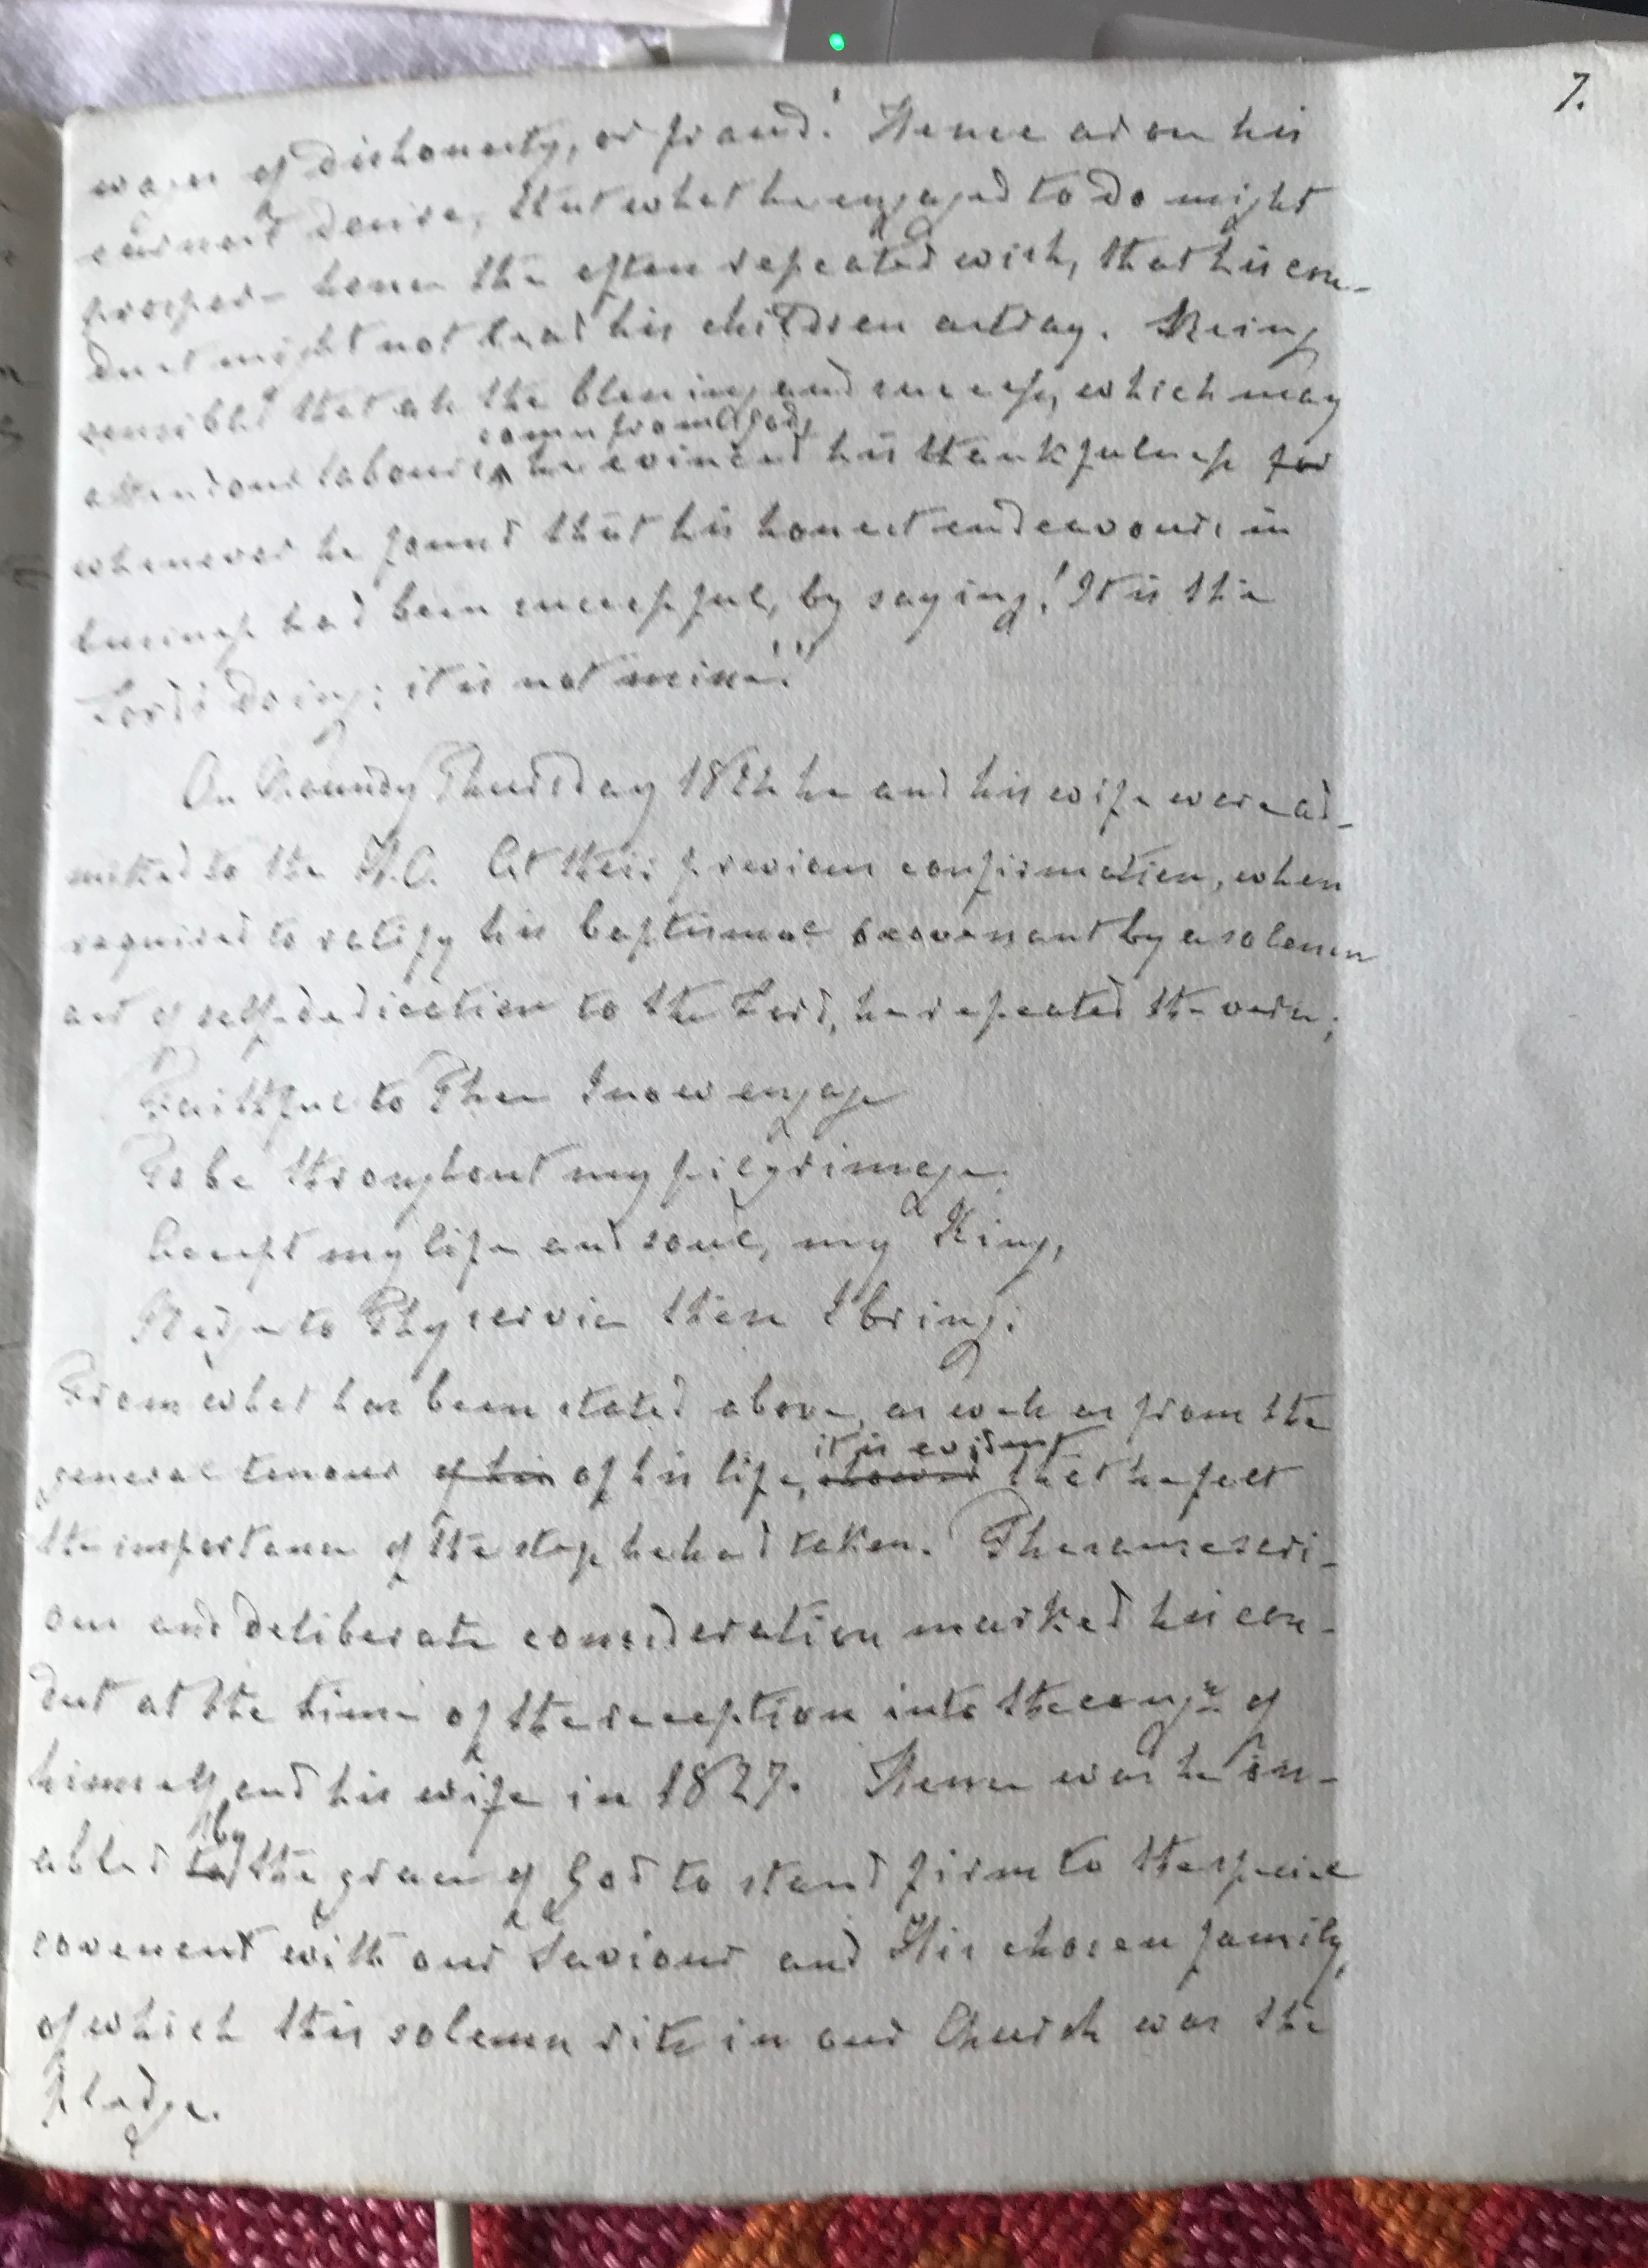 7.
ways of dishonesty, or fraud!' Hence arose his
earnest desire, that what he engaged to do might
prosper – hence the often repeated wish, that his con-
duct might not lead his children astray. Being
sensible that all the blessing and success, which may
attend our labours, comes from God, he evinced his thankfulness for
whenever he found that his honest endeavours in
business had been successful, by saying, 'It is the
Lord's doing; it is not mine!'
On Maundy Thursday 1824 he and his wife were ad-
mitted to the H.C. At their previous confirmation, when
required to ratify his baptismal covenant by a solemn
act of self-dedication to the Lord, he repeated the verse;
Faithful to Thee I now engage
To be throughout my pilgrimage;
Accept my life and soul, my King,
Pledge to Thy service these I bring:
From what has been stated above, as well as from the
general tenour of his of his life, it is evident that he felt
the importance of the step he had taken. The same seri-
ous and deliberate consideration marked his con-
duct at the time of the reception into the congn of
himself and his wife in 1827. Hence was he en-
abled by the grace of God to stand firm to the special
covenant with our Saviour and His chosen family,
of which this solemn rite in our Church was the
pledge.